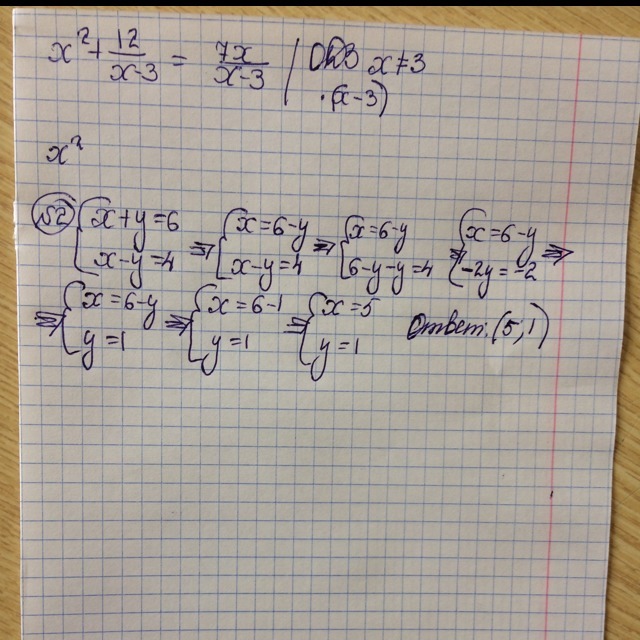 x² + 12/(x-3) = 7x/(x-3) | ОДЗ x≠3
·(x-3)
x²
№2 { x+y=6 ; x-y=4 => { x=6-y ; x-y=4 => { x=6-y ; 6-y-y=4 => { x=6-y ; -2y=-2 =>
=> { x=6-y ; y=1 => { x=6-1 ; y=1 => { x=5 ; y=1 Ответ: (5,1)